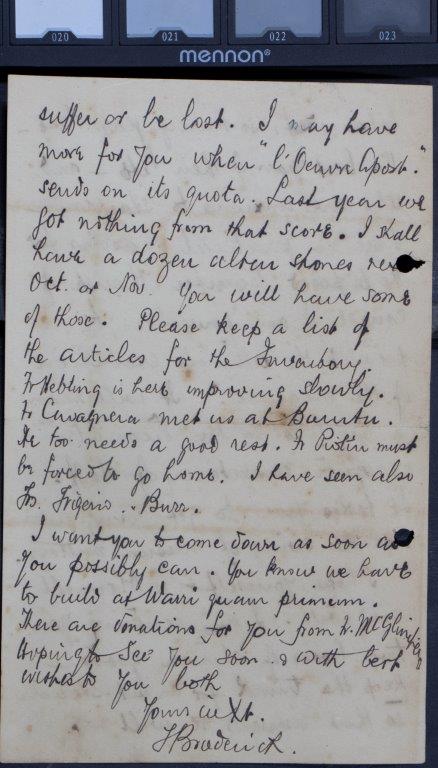 020 021 022 023
mennon®
suffer or be lost. I may have
more for you when "l'Oeuvre Apost."
sends on its quota. Last year we
got nothing from that score. I shall
have a dozen altar stones
Oct. or Nov. You will have some
of those. Please keep a list of
the articles for the Inventory.
Fr Hebting is here improving slowly.
Fr Cavagnera met us at Burutu.
He too needs a good rest. Fr Piotin must
be forced to go home. I have seen also
Frs. Frigerio Burr.
I want you to come down as soon as
you possibly can. You know we have
to build at Warri quam primum.
There are donations for you from Fr. McGlinchey
Hoping to see you soon & with best
wishes to you both
Yours in Xt.
Broderick.